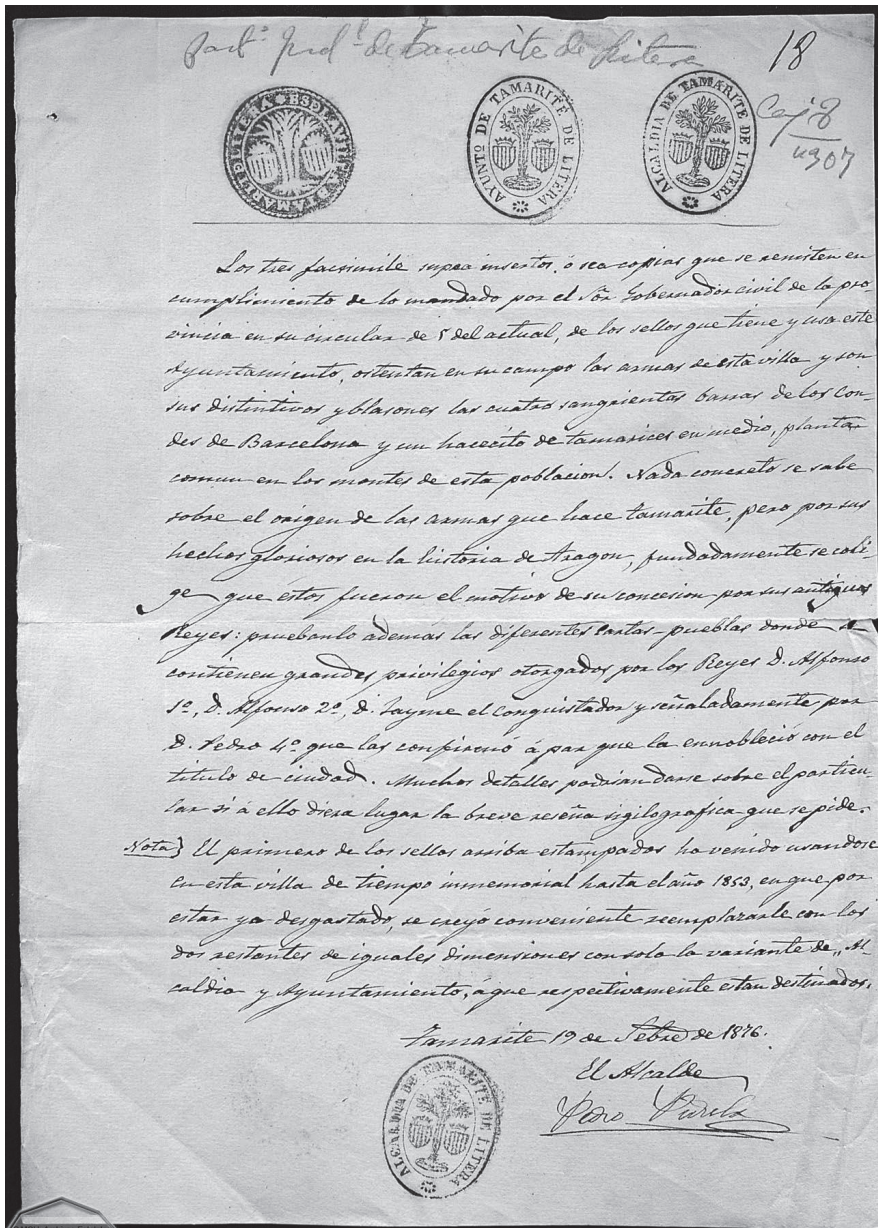 Part.º Jud.l de Tamarite de Litera
18
Caj 8
AYUNTO DE TAMARITE DE LITERA
ALCALDIA DE TAMARITE DE LITERA
Los tres facsimile supra insertos, ó sea copias que se remiten en
cumplimiento de lo mandado por el Sõr Gobernador civil de la pro-
vincia en su circular de 5 del actual, de los sellos que tiene y usa este
Ayuntamiento, ostentan en su campo las armas de esta villa y son
sus distintivos y blasones las cuatro sangrientas barras de los Con-
des de Barcelona y un hacecito de tamarices en medio, planta
comun en los montes de esta poblacion. Nada concreto se sabe
sobre el origen de las armas que hace Tamarite, pero por sus
hechos gloriosos en la historia de Aragon, fundadamente se coli-
ge que éstos fueron el motivo de su concesion por sus antiguos
Reyes: pruebanlo además las diferentes Cartas-pueblas donde se
contienen grandes privilegios otorgados por los Reyes D. Alfonso
1º, D. Alfonso 2º, D. Jayme el Conquistador y señaladamente por
D. Pedro 4º que las confirmó á par que la ennobleció con el
titulo de ciudad. Muchos detalles podrian darse sobre el particu-
lar si á ello diera lugar la breve reseña sigilografica que se pide.
Nota} El primero de los sellos arriba estampados ha venido usandose
en esta villa de tiempo inmemorial hasta el año 1853, en que por
estar ya desgastado, se creyó conveniente reemplazarle con los
dos restantes de iguales dimensiones con solo la variante de „Al-
caldia y Ayuntamiento, á que respectivamente estan destinados.
Tamarite 19 de Setbre de 1876.
El Alcalde
Pedro
ALCALDIA DE TAMARITE DE LITERA